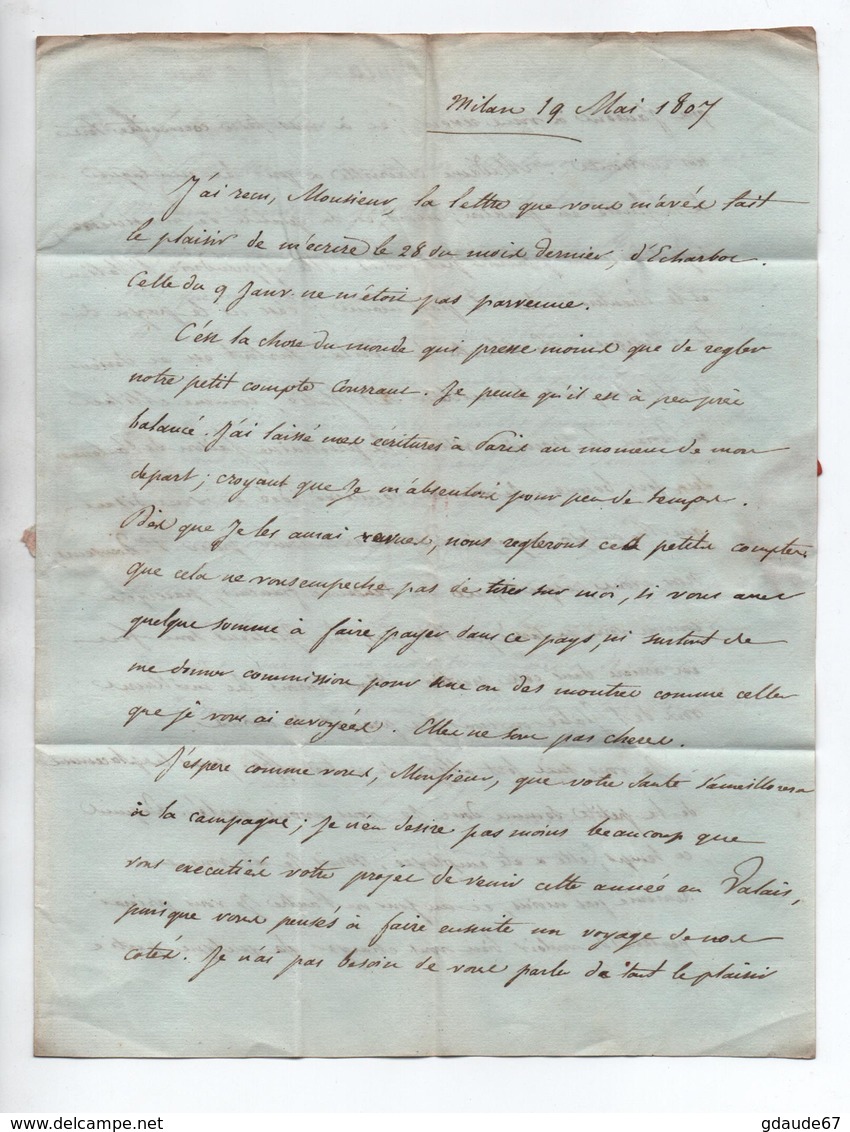 Milan 19 Mai 1807
J'ai recu, Monsieur, la lettre que vous m'avés fait
le plaisir de m'écrire le 28 du mois dernier, d'Echarboc.
Celle du 9 Janv. ne m'étoit pas parvenue.
C'est la chose du monde qui presse moins que de regler
notre petit compte Courrant. Je pense qu'il est à peu près
balancé. J'ai laissé mes écritures à Paris au moment de mon
depart; croyant que Je m'absentois pour peu de temps.
Dès que Je les aurai revues, nous reglerons ce petit compte
que cela ne vous empeche pas de tirer sur moi, si vous avez
quelque somme à faire payer dans ce pays, ni surtout de
me donner commission pour une ou des montres comme celles
que je vous ai envoyées. Elles ne sont pas cheres.
J'espere comme vous, Monsieur, que votre santé s'ameillorera
à la campagne; Je n'en desire pas moins beaucoup que
vous executiés votre projet de venir cette année en Valais,
puisque vous pensés à faire ensuite un voyage de nos
cotés. Je n'ai pas besoin de vous parler de tout le plaisir
gdaude67